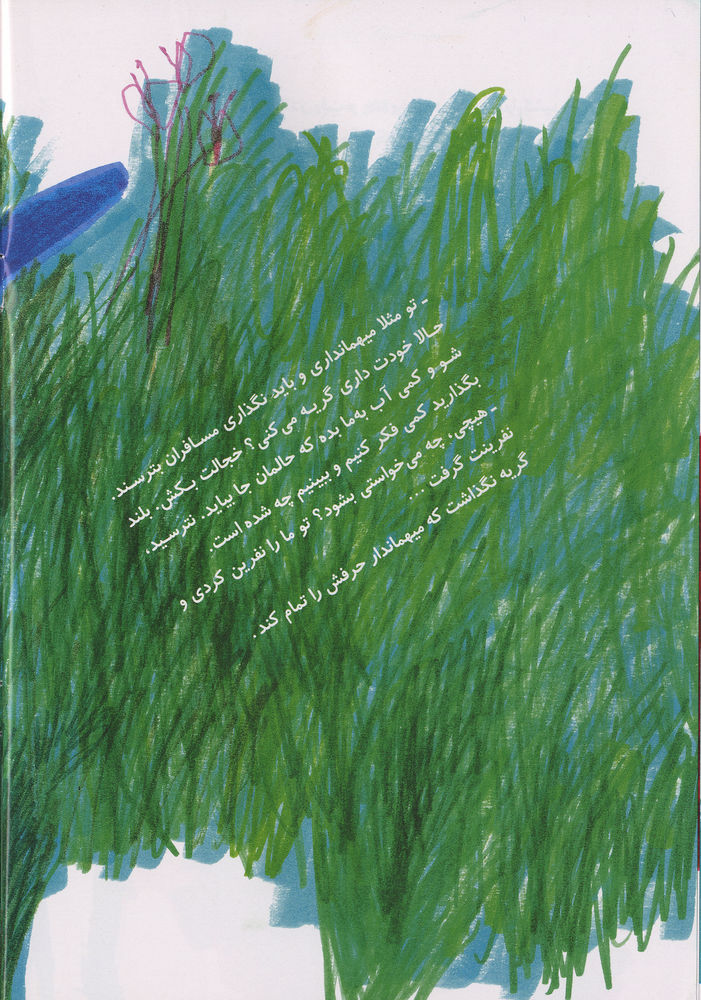 ـ تو مثلا میهمانداری و باید نگذاری مسافران بترسند.
حالا خودت داری گریه می‌کنی؟ خجالت بکش. بلند
شو و کمی آب به‌ما بده که حالمان جا بیاید. نترسید،
بگذارید کمی فکر کنیم و ببینیم چه شده است.
ـ هیچی، چه می‌خواستی بشود؟ تو ما را نفرین کردی و
نفرینت گرفت ...
گریه نگذاشت که میهماندار حرفش را تمام کند.